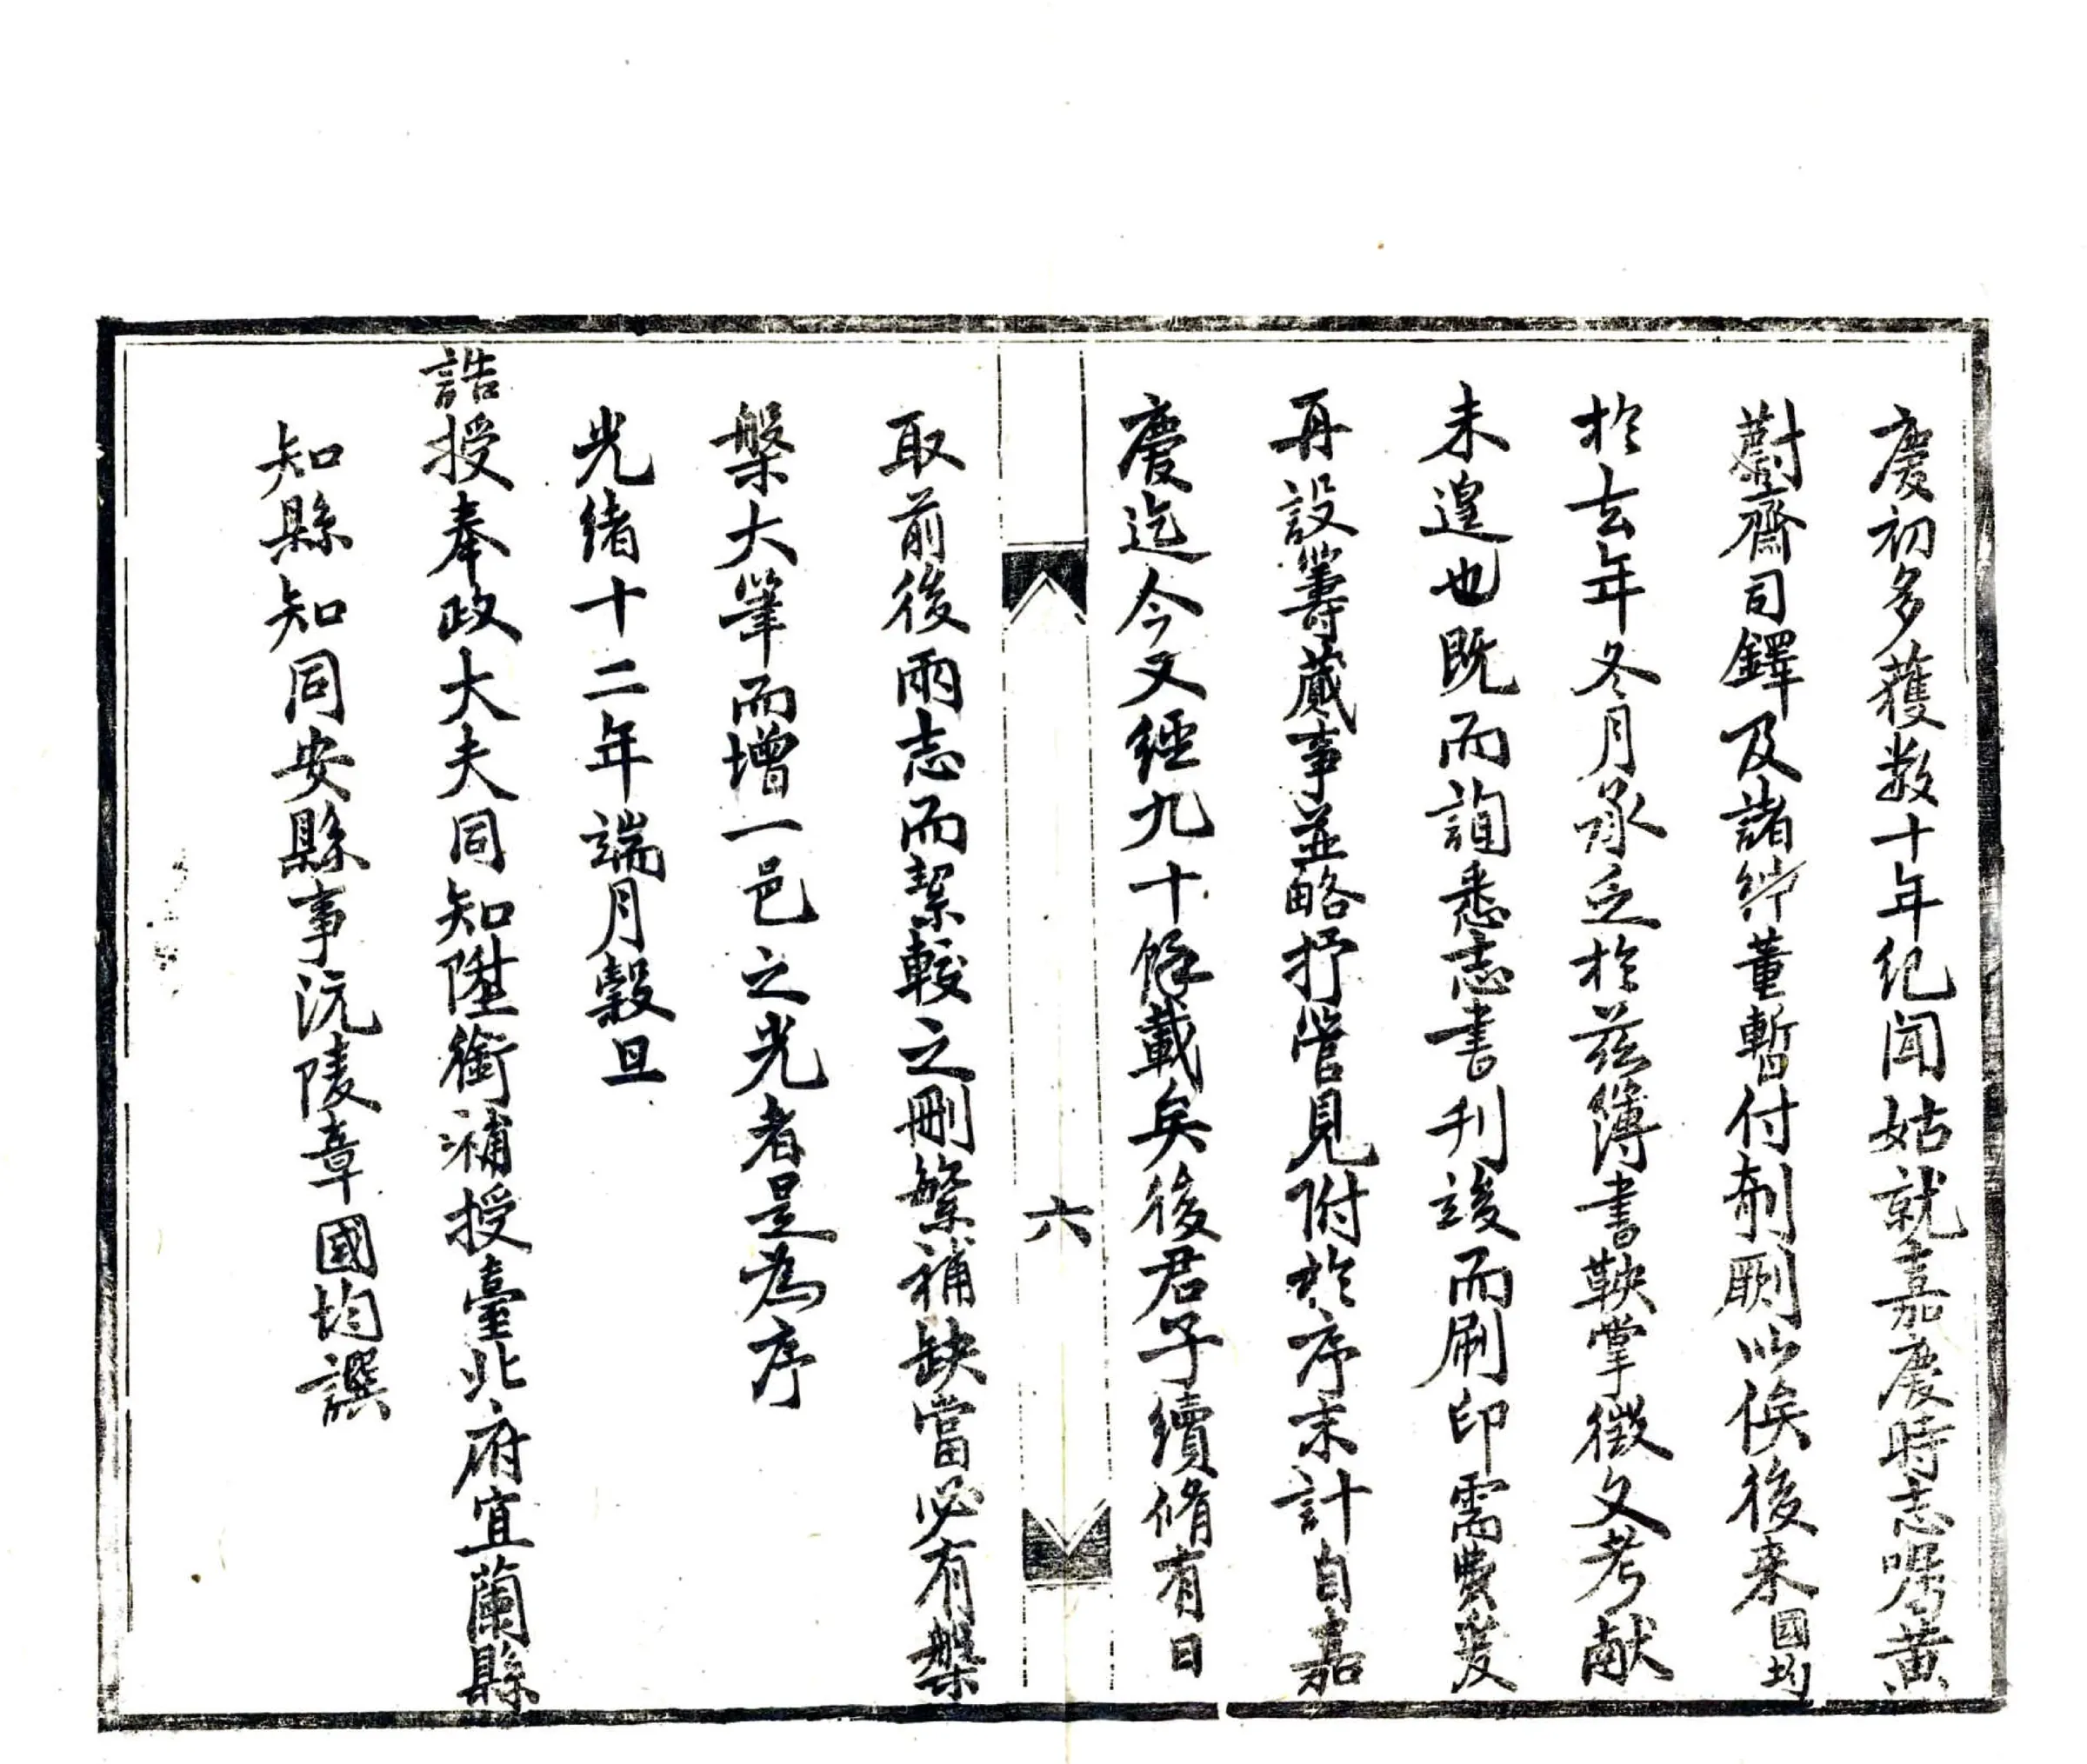 慶初多獲数十年紀聞姑就嘉慶時志嘱黄
蔚齋司鐸及諸紳董暫付剞劂以俟後来國均
於去年冬月承乏於兹簿書鞅掌徵文考献
未遑也既而詢悉志書刊竣而刷印需費爰
再設籌蕆事並略抒管見附於序末計自嘉
慶迄今又經九十餘載矣後君子續脩有日
六
取前後兩志而絜較之刪繁補缺當必有槃
槃大筆而增一邑之光者是為序
光緒十二年端月穀旦
誥授奉政大夫同知陞銜補授臺北府宜蘭縣
知縣知同安縣事沅陵章國均譔